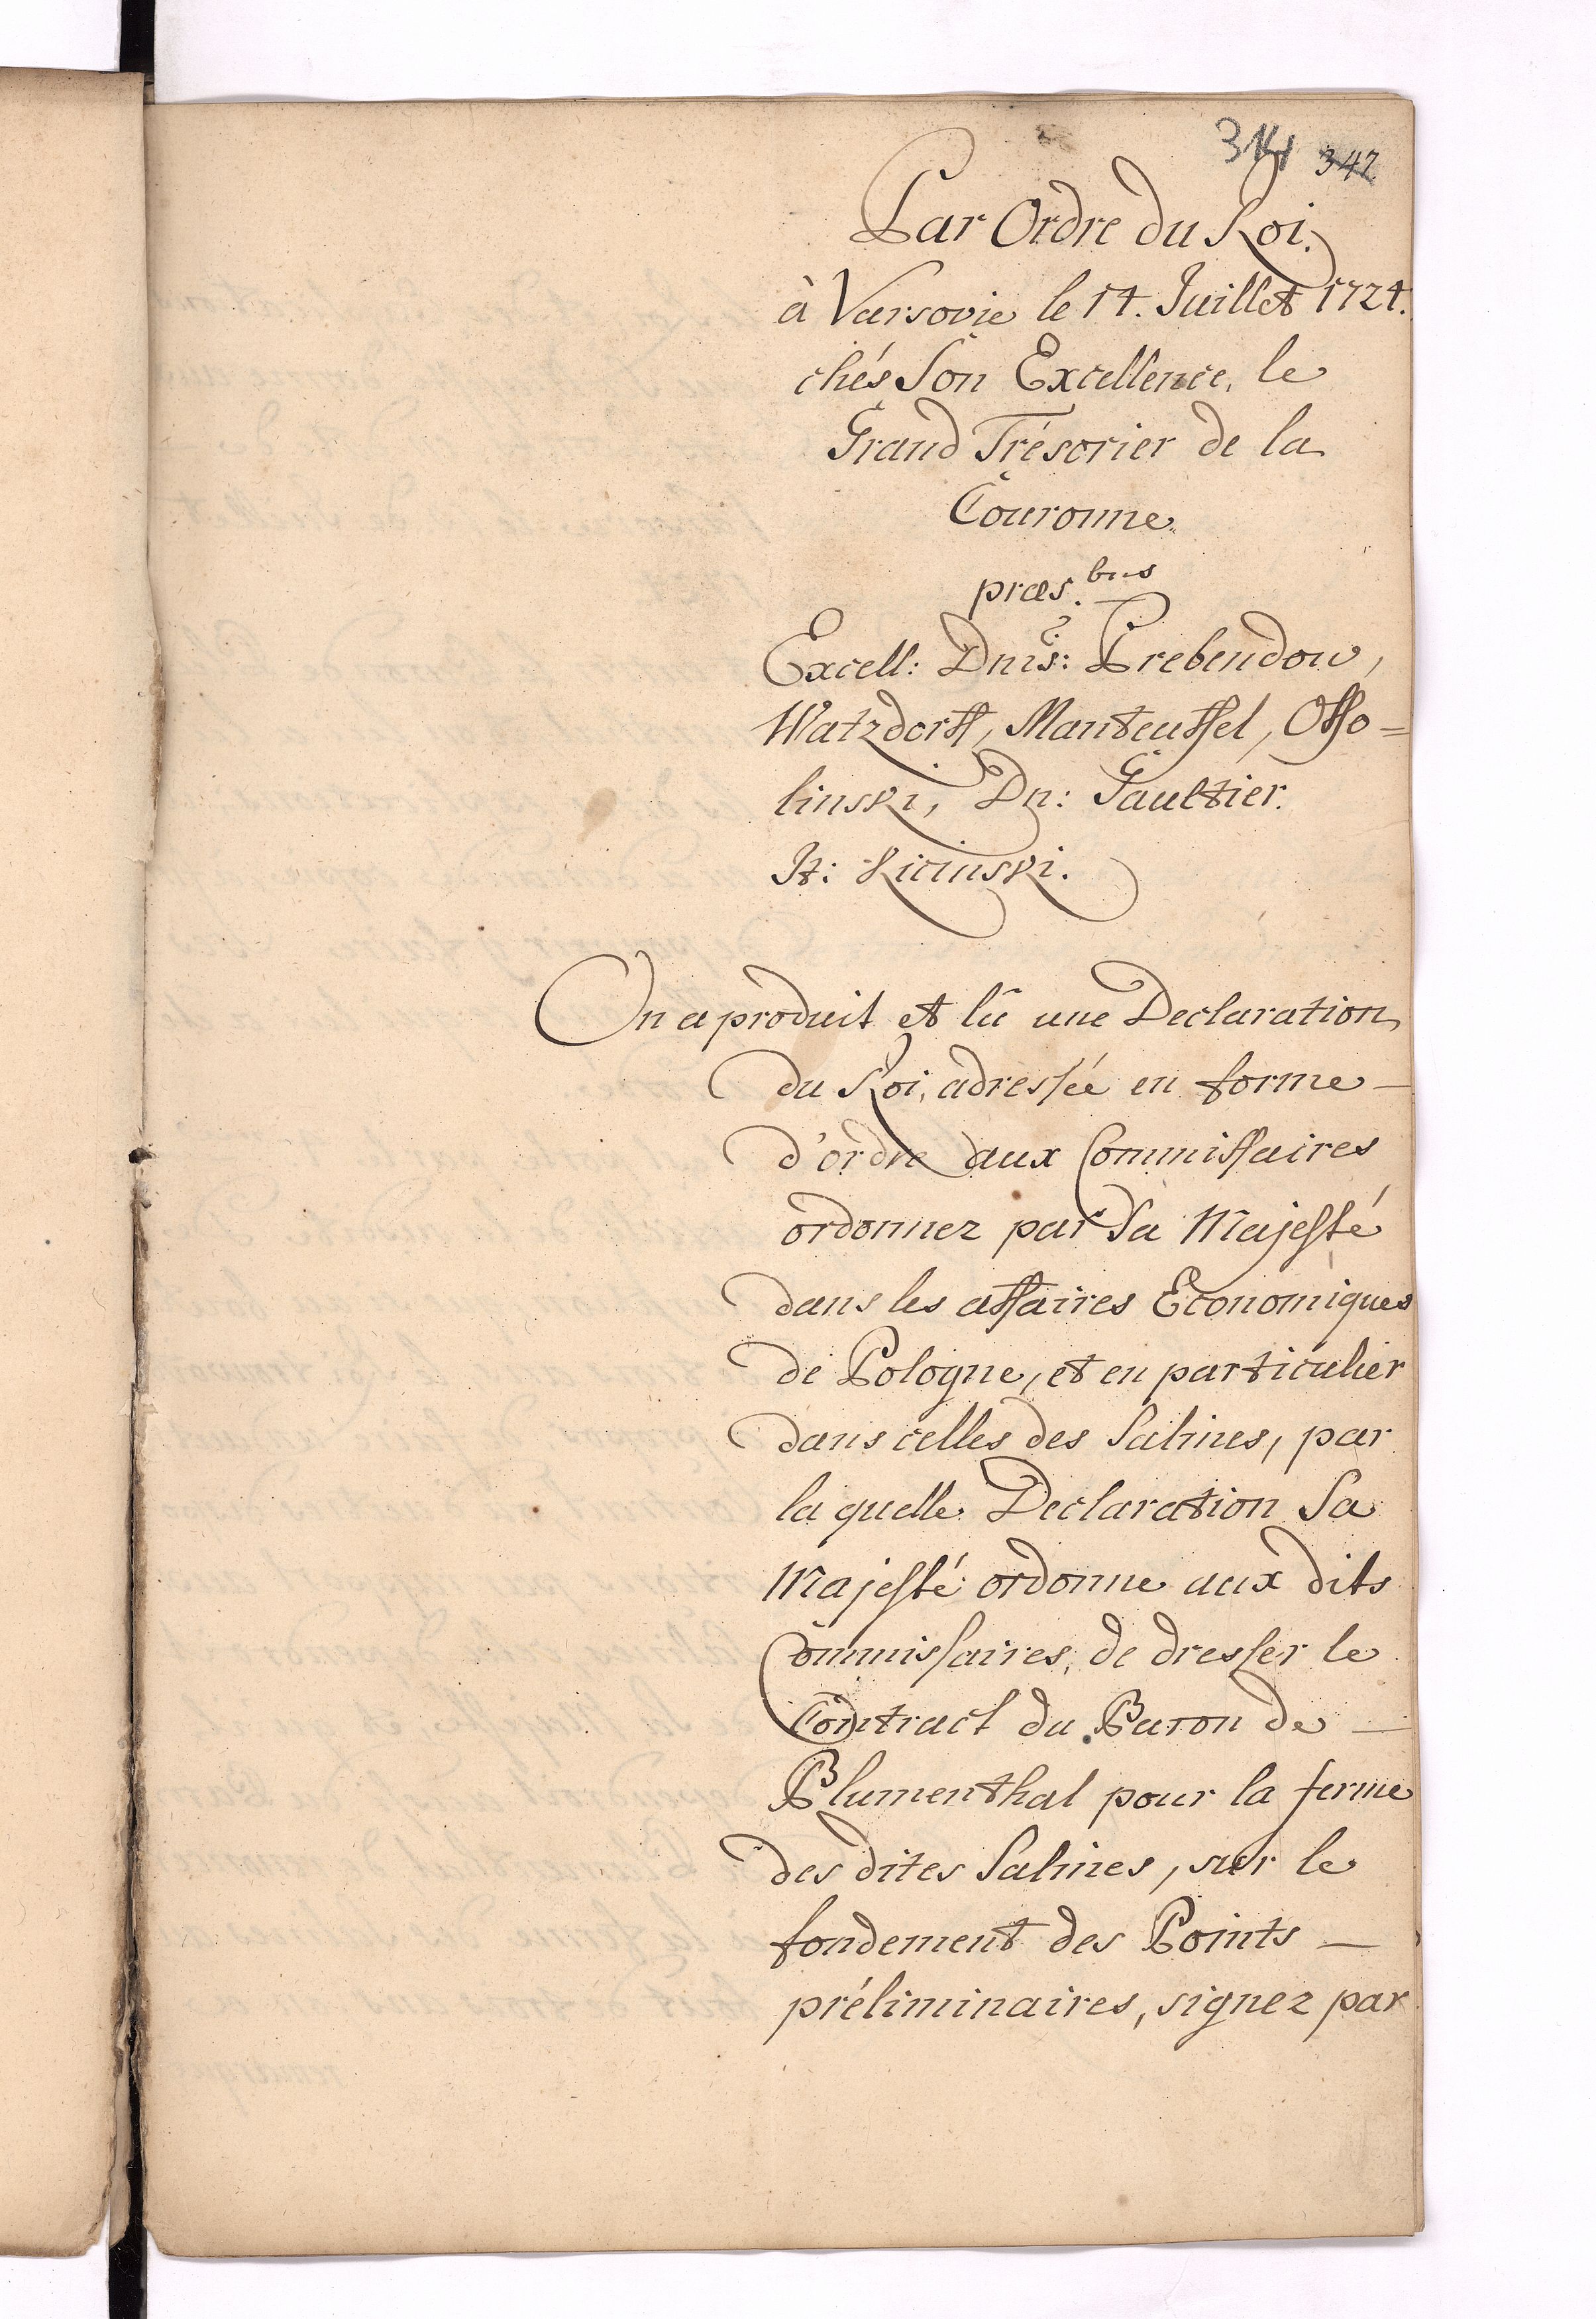 314 342
Par Ordre du Roi.
à Varsovie le 14. Juillet 1724.
chés Son Excellence, le
Grand Trésorier de la
Couronne.
præs.bus
Excell: Dnis: Prebendow,
Watzdorff, Manteuffel, Osso-
linski, Dn: Gaultier.
It: Kicinski.
On a produit et lû une Declaration
du Roi, adressée en forme
d'ordre aux Commissaires
ordonnez par Sa Majesté
dans les affaires Economiques
de Pologne, et en particulier
dans celles des Salines, par
la quelle Declaration Sa
Majesté ordonne aux dits
Commissaires, de dresser le
Contract du Baron de
Blumenthal pour la ferme
des dites Salines, sur le
fondement des Points
préliminaires, signez par